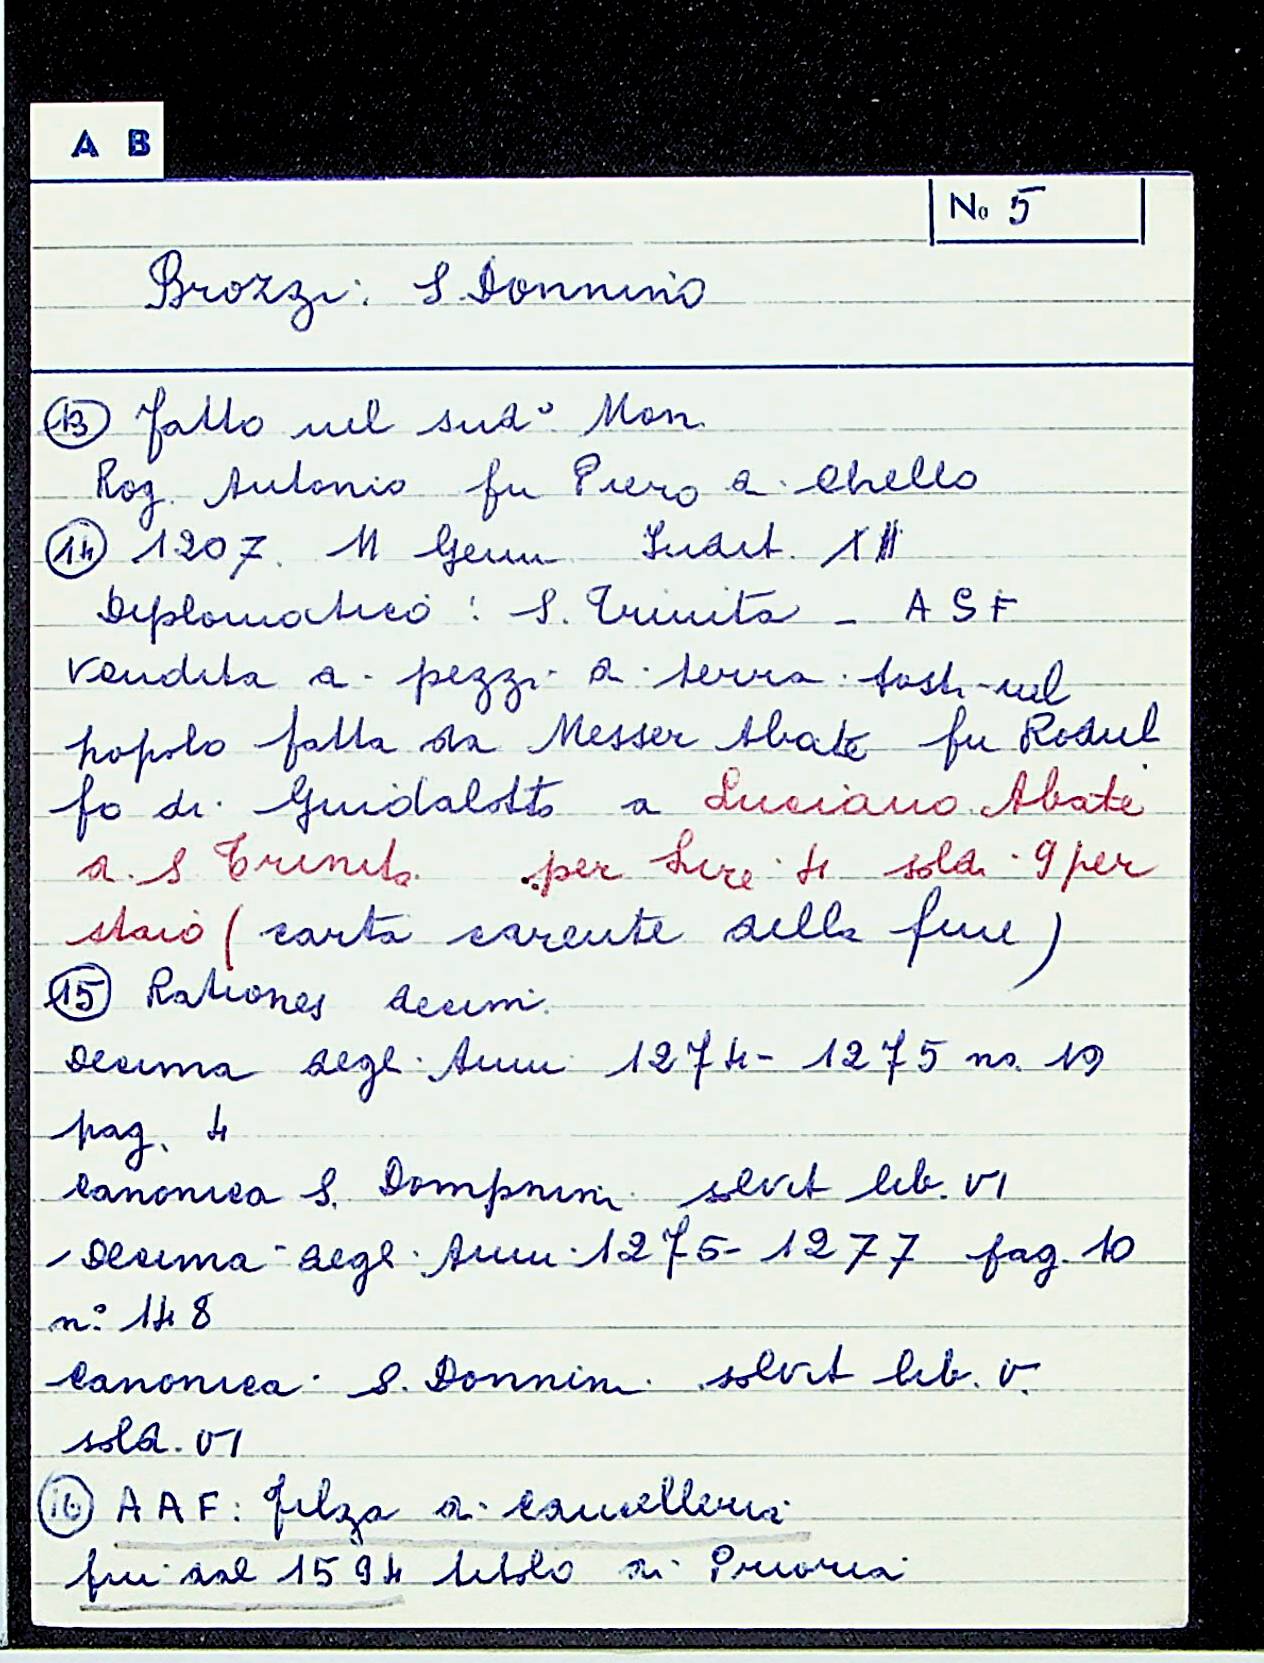 A B
No 5
Brozzi: S. Donnino
13 fatto nel sud° Mon.
Rog. Antonio fu Piero di Chello
14 1207. 11 Genn Indit. XII
Diplomatico: S. Trinita - ASF
vendita di pezzi di terra posti nel
popolo fatta da Messer Abate fu Rodul
fo di Guidalotto a Luciano Abate
di S Trinita per Lire 4 sold. 9 per
staio (carta carente della fine)
15 Rationes decim.
Decima degli Anni 1274-1275 no. 19
pag. 4
Canonica S. Dompnini solvit lib. VI
Decima degli Anni 1275-1277 pag. 10
n° 148
Canonica S. Donnini solvit lib. V.
sold. VI
16 AAF: Filza di Cancelleria
fin dal 1594 titolo di Prioria